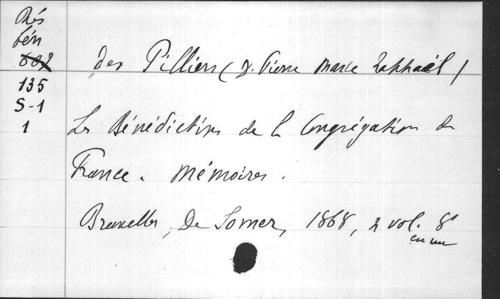 Rés
bén
602
135
S-1
1
des Pilliers (D. Pierre Marie Raphaël)
Les Bénédictins de la Congrégation de
France. Mémoires.
Bruxelles, De Somer, 1868, 2 vol. 8°
en un